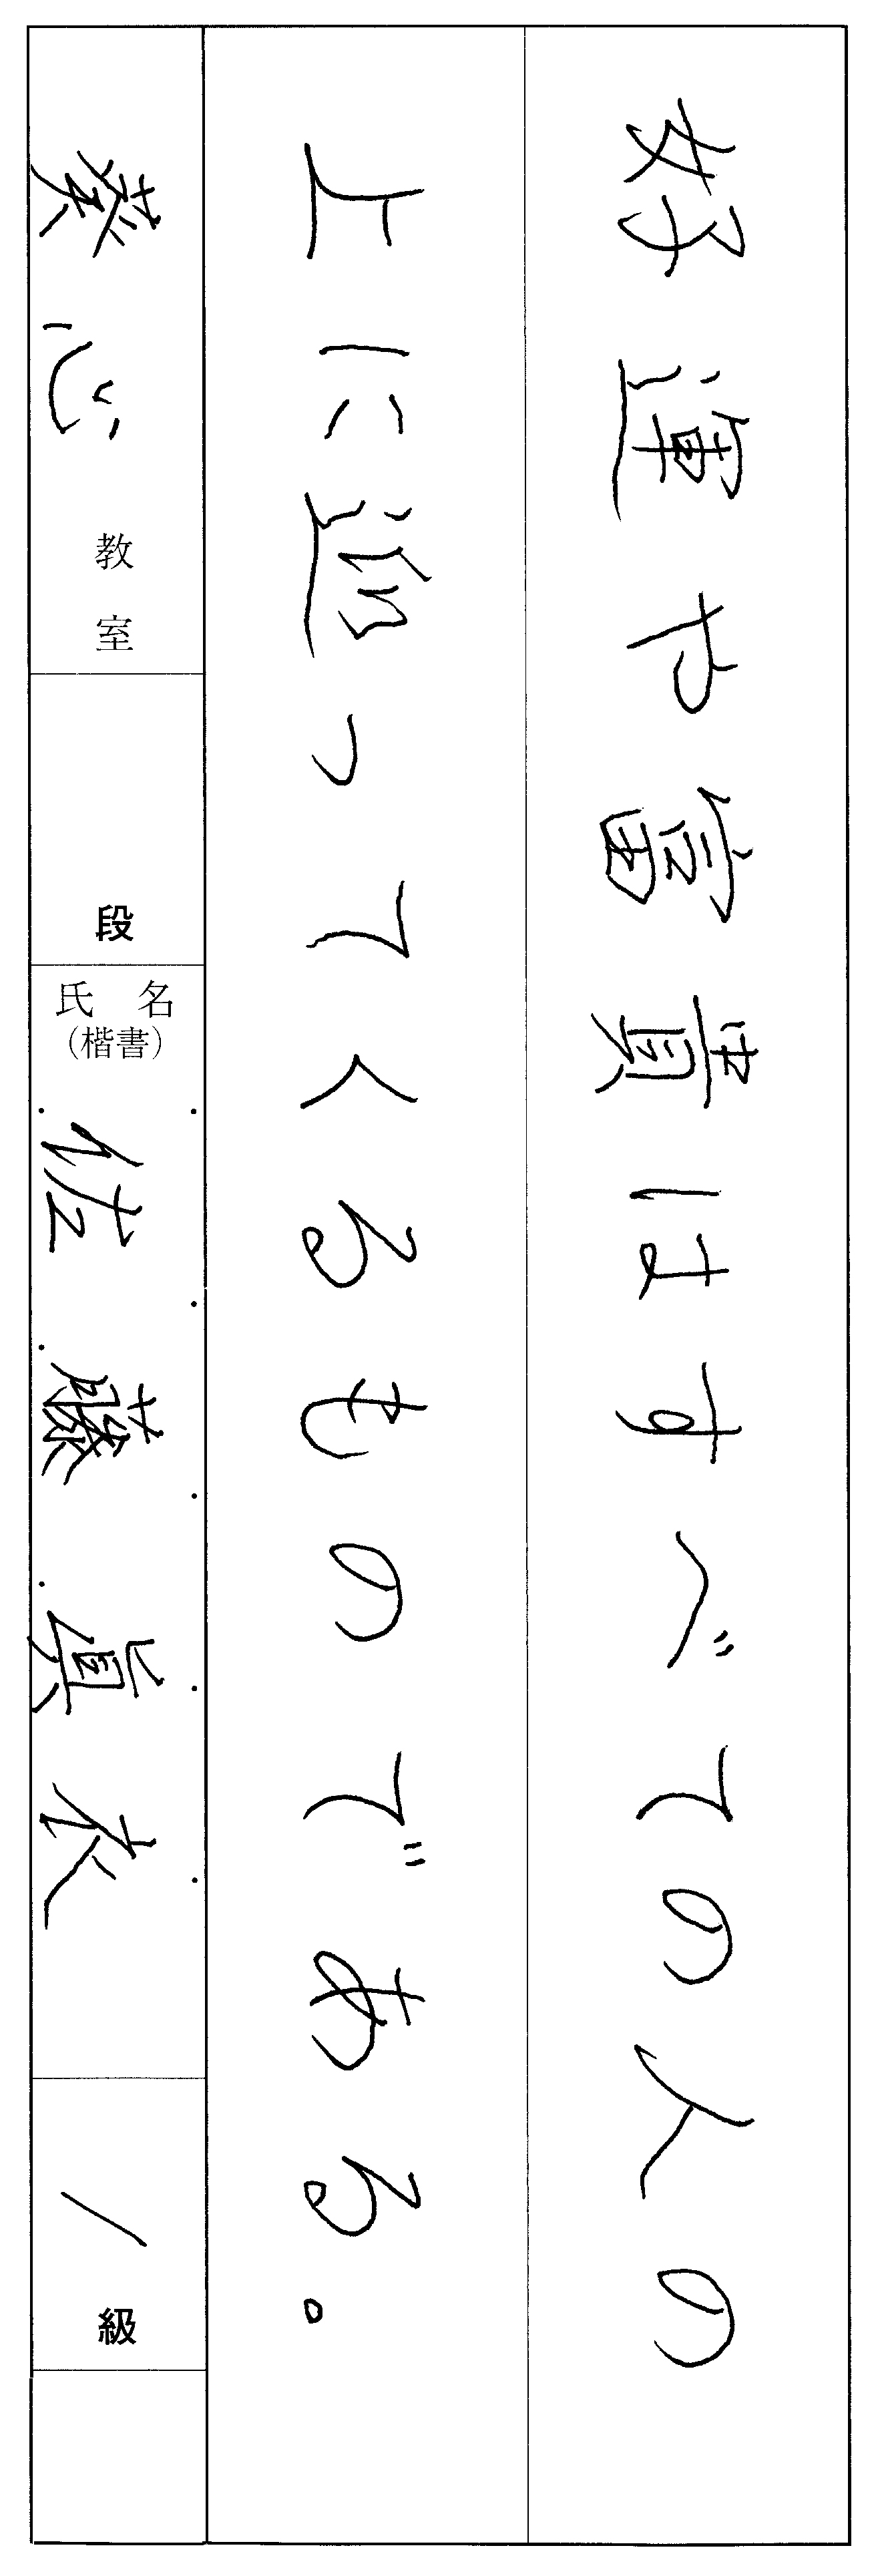 好運や富貴はすべての人の
上に巡ってくるものである。
葵心教室
段
氏名
(楷書)
佐藤眞衣
1級